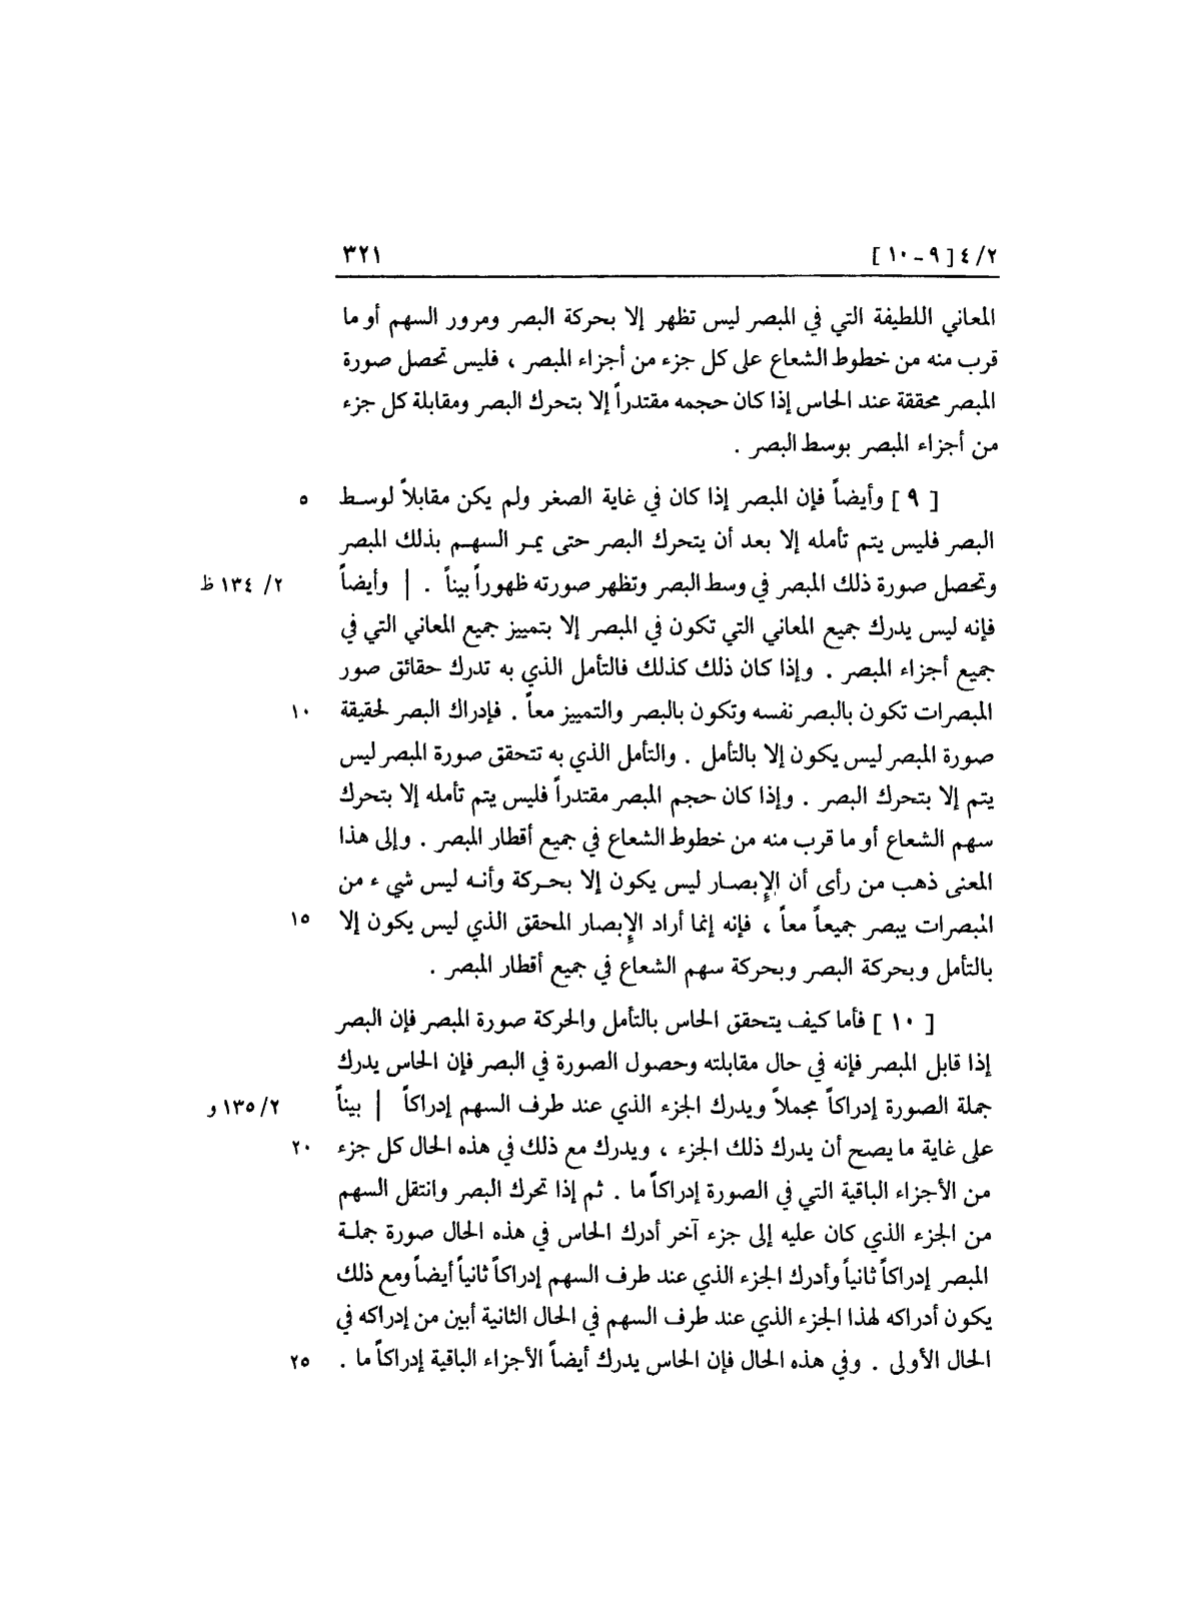 ٢/ ٤ [ ٩ – ١٠ ] ٣٢١
المعاني اللطيفة التي في المبصر ليس تظهر إلا بحركة البصر ومرور السهم أو ما
قرب منه من خطوط الشعاع على كل جزء من أجزاء المبصر ، فليس تحصل صورة
المبصر محققة عند الحاس إذا كان حجمه مقتدراً إلا بتحرك البصر ومقابلة كل جزء
من أجزاء المبصر بوسط البصر .
[ ٩ ] وأيضاً فإن المبصر إذا كان في غاية الصغر ولم يكن مقابلاً لوسط ٥
البصر فليس يتم تأمله إلا بعد أن يتحرك البصر حتى يمر السهم بذلك المبصر
وتحصل صورة ذلك المبصر في وسط البصر وتظهر صورته ظهوراً بيناً . | وأيضاً ٢/ ١٣٤ ظ
فإنه ليس يدرك جميع المعاني التي تكون في المبصر إلا بتمييز جميع المعاني التي في
جميع أجزاء المبصر . وإذا كان ذلك كذلك فالتأمل الذي به تدرك حقائق صور
المبصرات تكون بالبصر نفسه وتكون بالبصر والتمييز معاً . فإدراك البصر لحقيقة ١٠
صورة المبصر ليس يكون إلا بالتأمل . والتأمل الذي به تتحقق صورة المبصر ليس
يتم إلا بتحرك البصر . وإذا كان حجم المبصر مقتدراً فليس يتم تأمله إلا بتحرك
سهم الشعاع أو ما قرب منه من خطوط الشعاع في جميع أقطار المبصر . وإلى هذا
المعنى ذهب من رأى أن الإبصار ليس يكون إلا بحركة وأنه ليس شيء من
المبصرات يبصر جميعاً معاً ، فإنه إنما أراد الإبصار المحقق الذي ليس يكون إلا ١٥
بالتأمل وبحركة البصر وبحركة سهم الشعاع في جميع أقطار المبصر .
[ ١٠ ] فأما كيف يتحقق الحاس بالتأمل والحركة صورة المبصر فإن البصر
إذا قابل المبصر فإنه في حال مقابلته وحصول الصورة في البصر فإن الحاس يدرك
جملة الصورة إدراكاً مجملاً ويدرك الجزء الذي عند طرف السهم إدراكاً | بيناً ٢/ ١٣٥ و
على غاية ما يصح أن يدرك ذلك الجزء ، ويدرك مع ذلك في هذه الحال كل جزء ٢٠
من الأجزاء الباقية التي في الصورة إدراكاً ما . ثم إذا تحرك البصر وانتقل السهم
من الجزء الذي كان عليه إلى جزء آخر أدرك الحاس في هذه الحال صورة جملة
المبصر إدراكاً ثانياً وأدرك الجزء الذي عند طرف السهم إدراكاً ثانياً أيضاً ومع ذلك
يكون أدراكه لهذا الجزء الذي عند طرف السهم في الحال الثانية أبين من إدراكه في
الحال الأولى . وفي هذه الحال فإن الحاس يدرك أيضاً الأجزاء الباقية إدراكاً ما . ٢٥